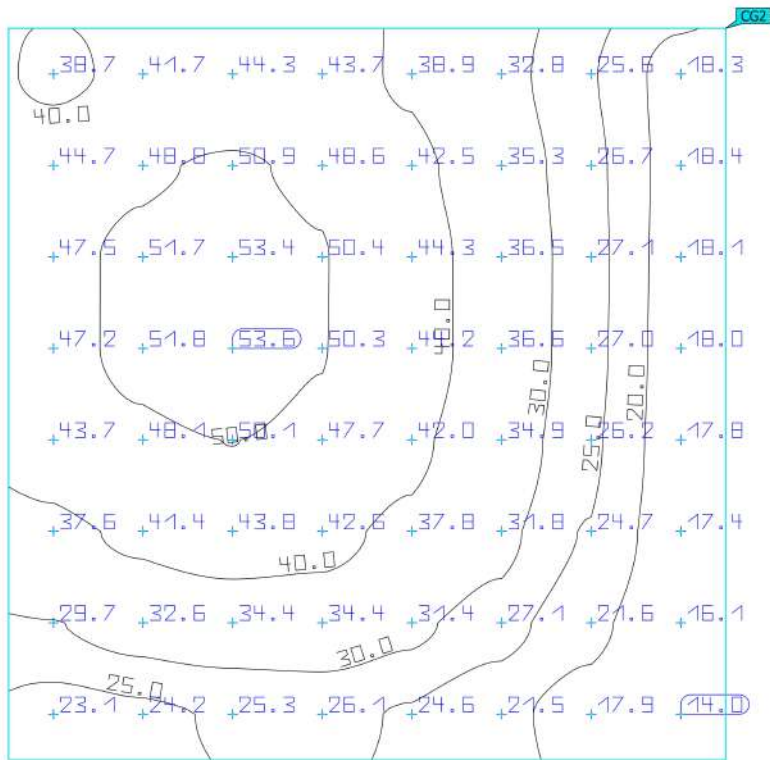 CG2
38.7 41.7 44.3 43.7 38.9 32.8 25.6 18.3
40.0
44.7 48.8 50.9 48.6 42.5 35.3 26.7 18.4
47.5 51.7 53.4 50.4 44.3 36.5 27.1 18.1
40.0
47.2 51.8 53.6 50.3 44.2 36.6 27.0 18.0
30.0 20.0
43.7 48.1 50.1 47.7 42.0 34.9 26.2 17.8
50.0 25.0
37.6 41.4 43.8 42.6 37.8 31.8 24.7 17.4
40.0
29.7 32.6 34.4 34.4 31.4 27.1 21.6 16.1
30.0
25.0
23.1 24.2 25.3 26.1 24.6 21.5 17.9 14.0